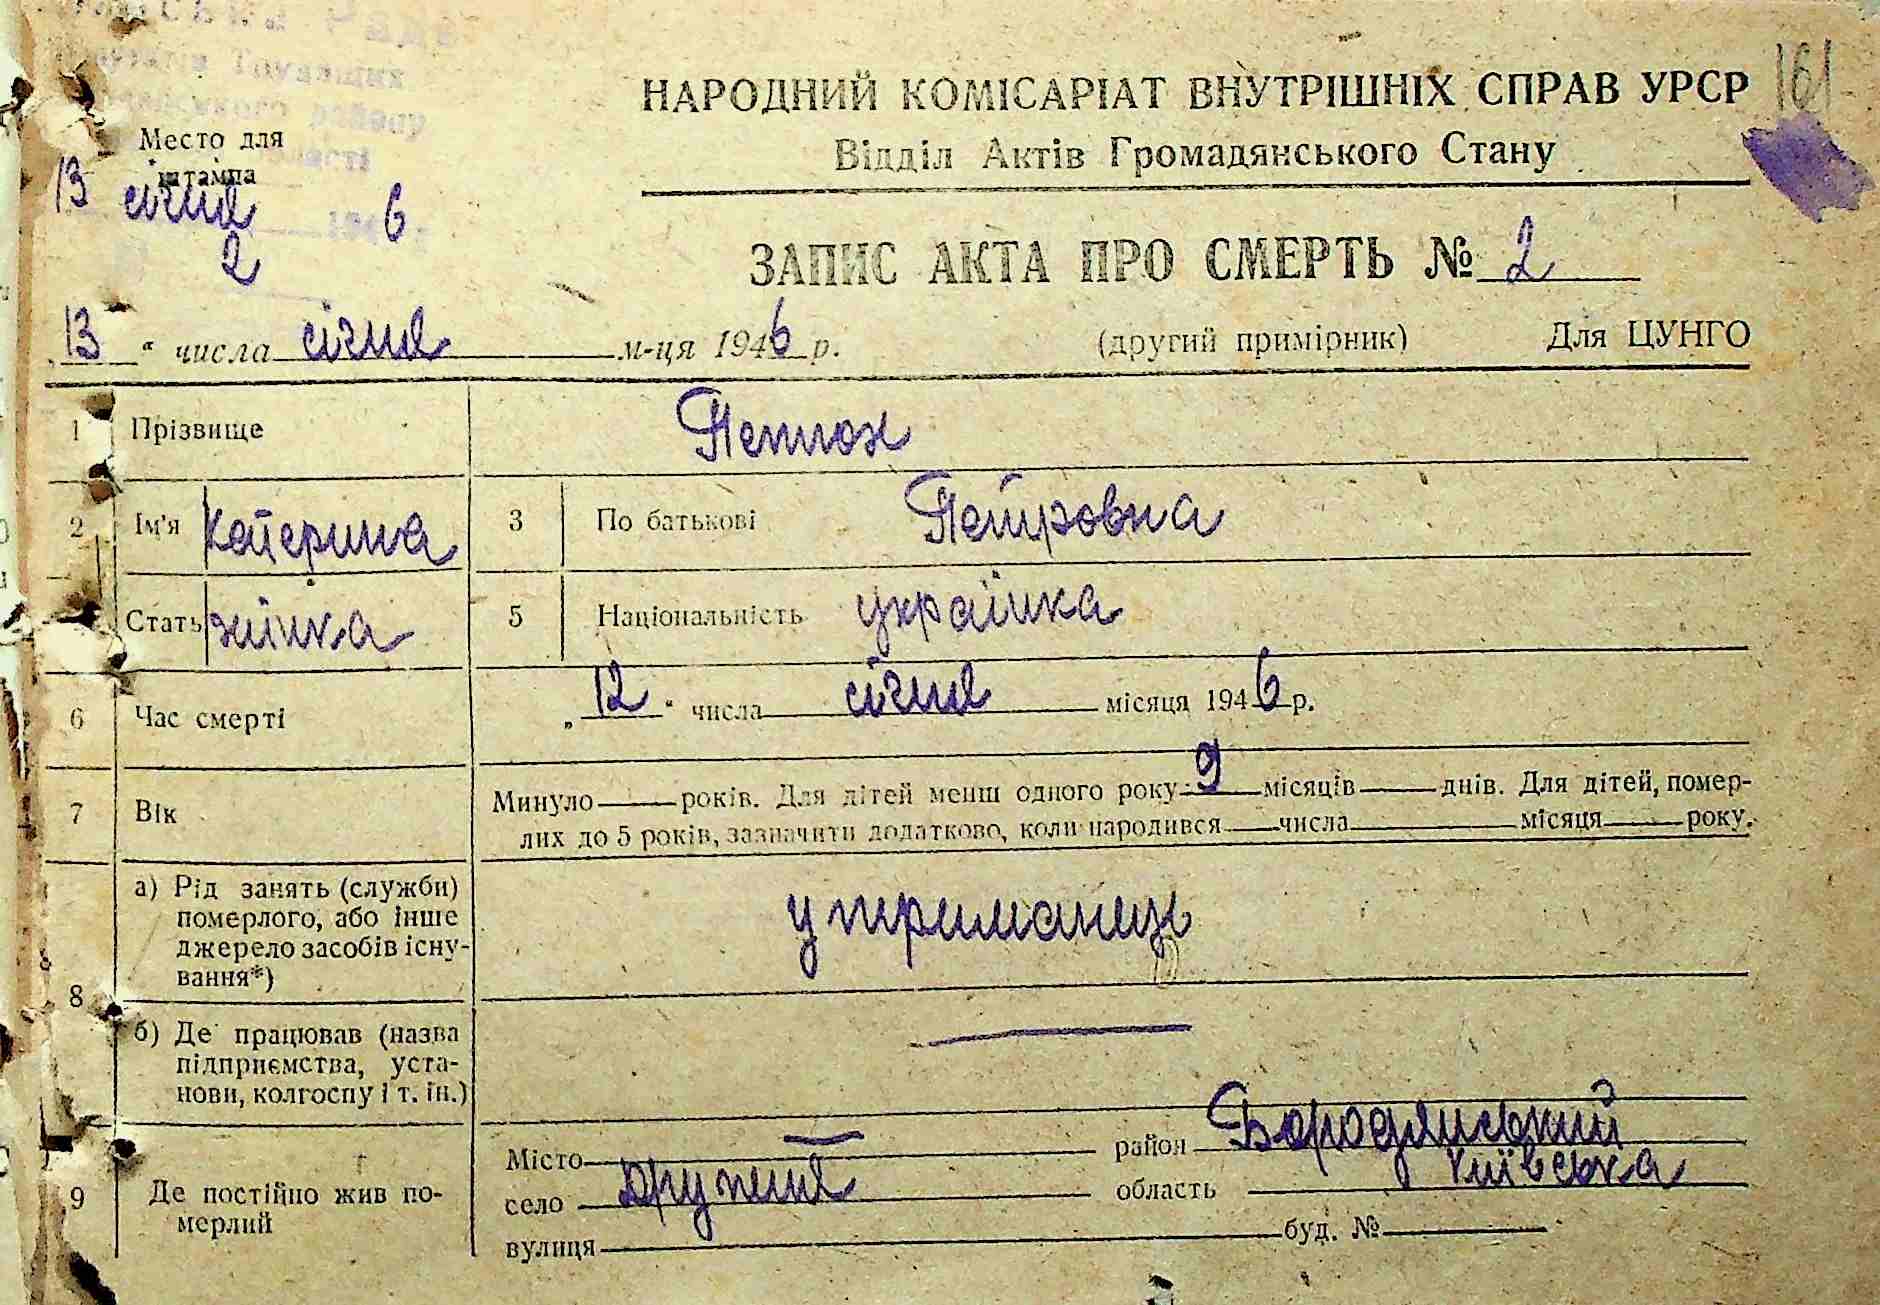 161
НАРОДНИЙ КОМІСАРІАТ ВНУТРІШНІХ СПРАВ УРСР
Відділ Актів Громадянського Стану
Трудящих
району
області
Место для
штампа
13 січня 1946
2
ЗАПИС АКТА ПРО СМЕРТЬ № 2
13 " числа січня м-ця 1946 р. (другий примірник) Для ЦУНГО
1 Прізвище
2 Ім'я Катерина 3 По батькові Петровна
Стать жінка 5 Національність українка
6 Час смерті „12" числа січня місяця 1946 р.
7 Вік Минуло років. Для дітей менш одного року 9 місяців днів. Для дітей, помер-
лих до 5 років, зазначити додатково, коли народився числа місяця року.
8 а) Рід занять (служби)
померлого, або інше
джерело засобів існу-
вання*) утриманець
б) Де працював (назва
підприємства, уста-
нови, колгоспу і т. ін.)
9 Де постійно жив по-
мерлий
Місто — район Бородянський
село Дружня область Київська
вулиця буд. №